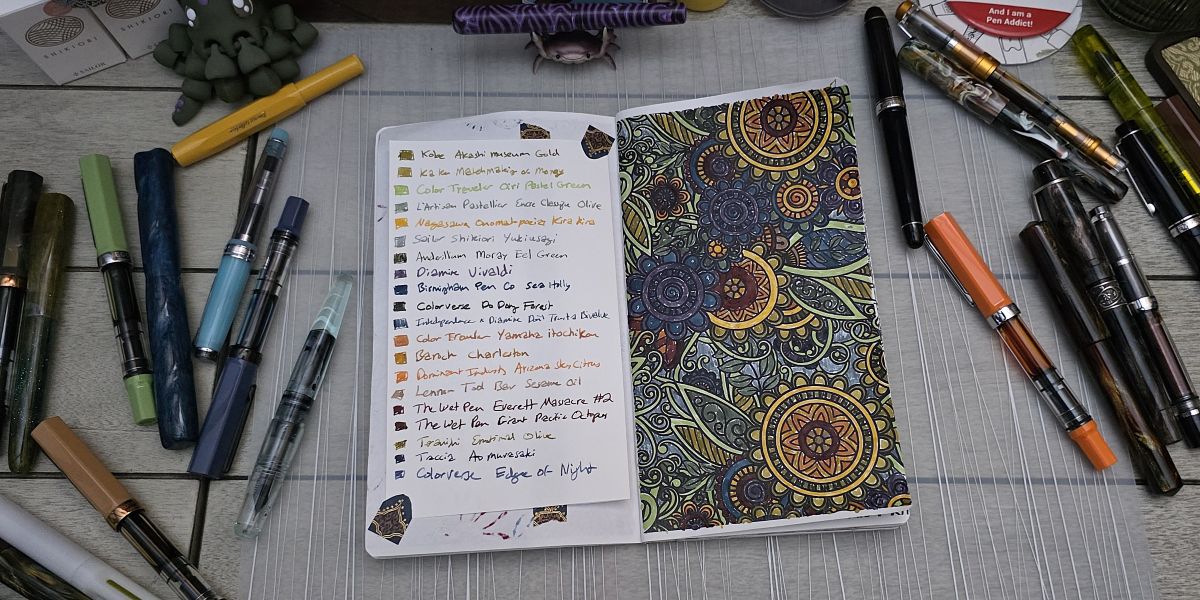 SHIKIORI
SHIKIORI
SAILOR
And I am a
Pen Addict!
Kobe Akashi museum Gold
Color Traveler Oiri Pastel Green
L'Artisan Pastellier Encre Classique Olive
Nagasawa Onomatopoeia Kira Kira
Sailor Shikiori Yukiusagi
Anderillium Moray Eel Green
Diamine Vivaldi
Birmingham Pen Co Sea Holly
Colorverse Do Dong Forest
Independence x Diamine Bivalve
Color Traveler Yamaha itochikan
Barock Charleston
Dominant Industry Arizona Citrus
Lennon Tool Bar Sesame Oil
The Wet Pen Everett Massacre #2
The Wet Pen Giant Pacific Octopus
Teranishi Emotional Olive
Taccia Aomurasaki
Colorverse Edge of Night